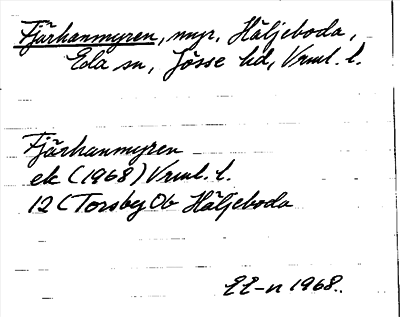 Fjärhanmyren, myr, Häljeboda,
Eda sn, Jösse hd, Vrml. l.
Fjärhanmyren
ek (1968) Vrml. l.
12C Torsby Ob Häljeboda
EE-n 1968.